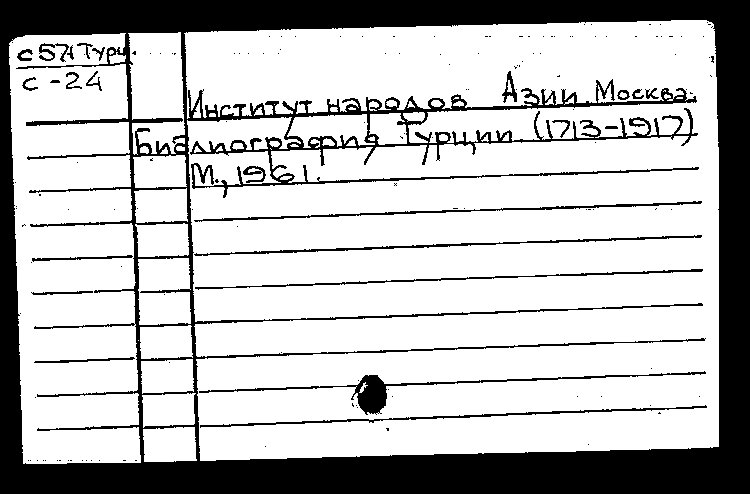 с 571 Турц.
с - 24
Институт народов Азии. Москва.
Библиография Турции (1713-1917)
М., 1961.